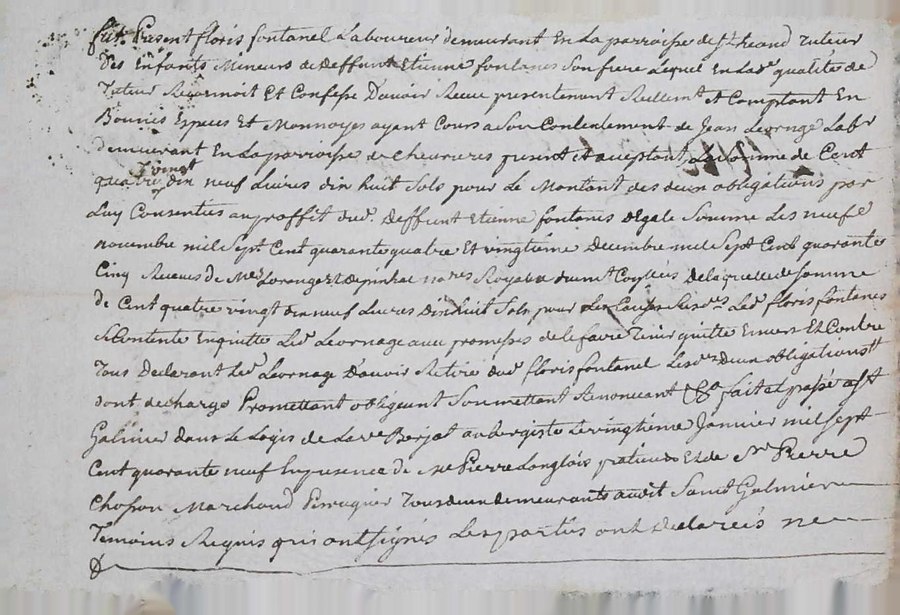 fut Present floris fontanel Laboureur demeurant En La parroisse de St heand Tuteur
des Enfants Mineurs de deffunt Etienne fontanes Son frere Lequel En Lad. qualité de
Tuteur Reconnoit Et Confesse D'avoir Receu presentement Reellemt Et Comptant En
Bonnes Especes Et Monnoyes ayant Cours a Son Contentement de Jean Leornage Labr
demeurant En La parroisse de Chevrieres present et aceptant La Somme de Cent
quatre vingt din neuf Livres din huit Sols pour Le Montant des deux obligations par
Luy Consenties au proffit dud. Deffunt Etienne fontanes d'Egale Somme Les neufe
novembre mil Sept Cent quarante quatre Et vingtieme Decembre mil Sept Cent quarante
Cinq Receues de Mes Et nores Royaux de laquelle de Somme
de Cent quatre vingt din neuf Livres Din huit Sols pour Les Causes Led. floris fontanes
Se Contente En quitte Led. Leornage avec promesses de le faire Tenir quitte Envers Et Contre
Tous Declarant Led. Leornage D'avoir Retiré dud. floris fontanel Lesd. Deux obligations
dont decharge Promettant obligeant Soumettant Renoncant &a fait et passé a St
Galmier dans Le Logis de La ve Borjat aubergiste Le vingtieme Janvier mil Sept
Cent quarante neuf En presence de Me Pierre Langlois praticien Et de Sr Pierre
Chosson Marchand Perruquier Tous deux demeurants audit Saint Galmier
Temoins Requis qui ont signés Les parties ont declarés ne